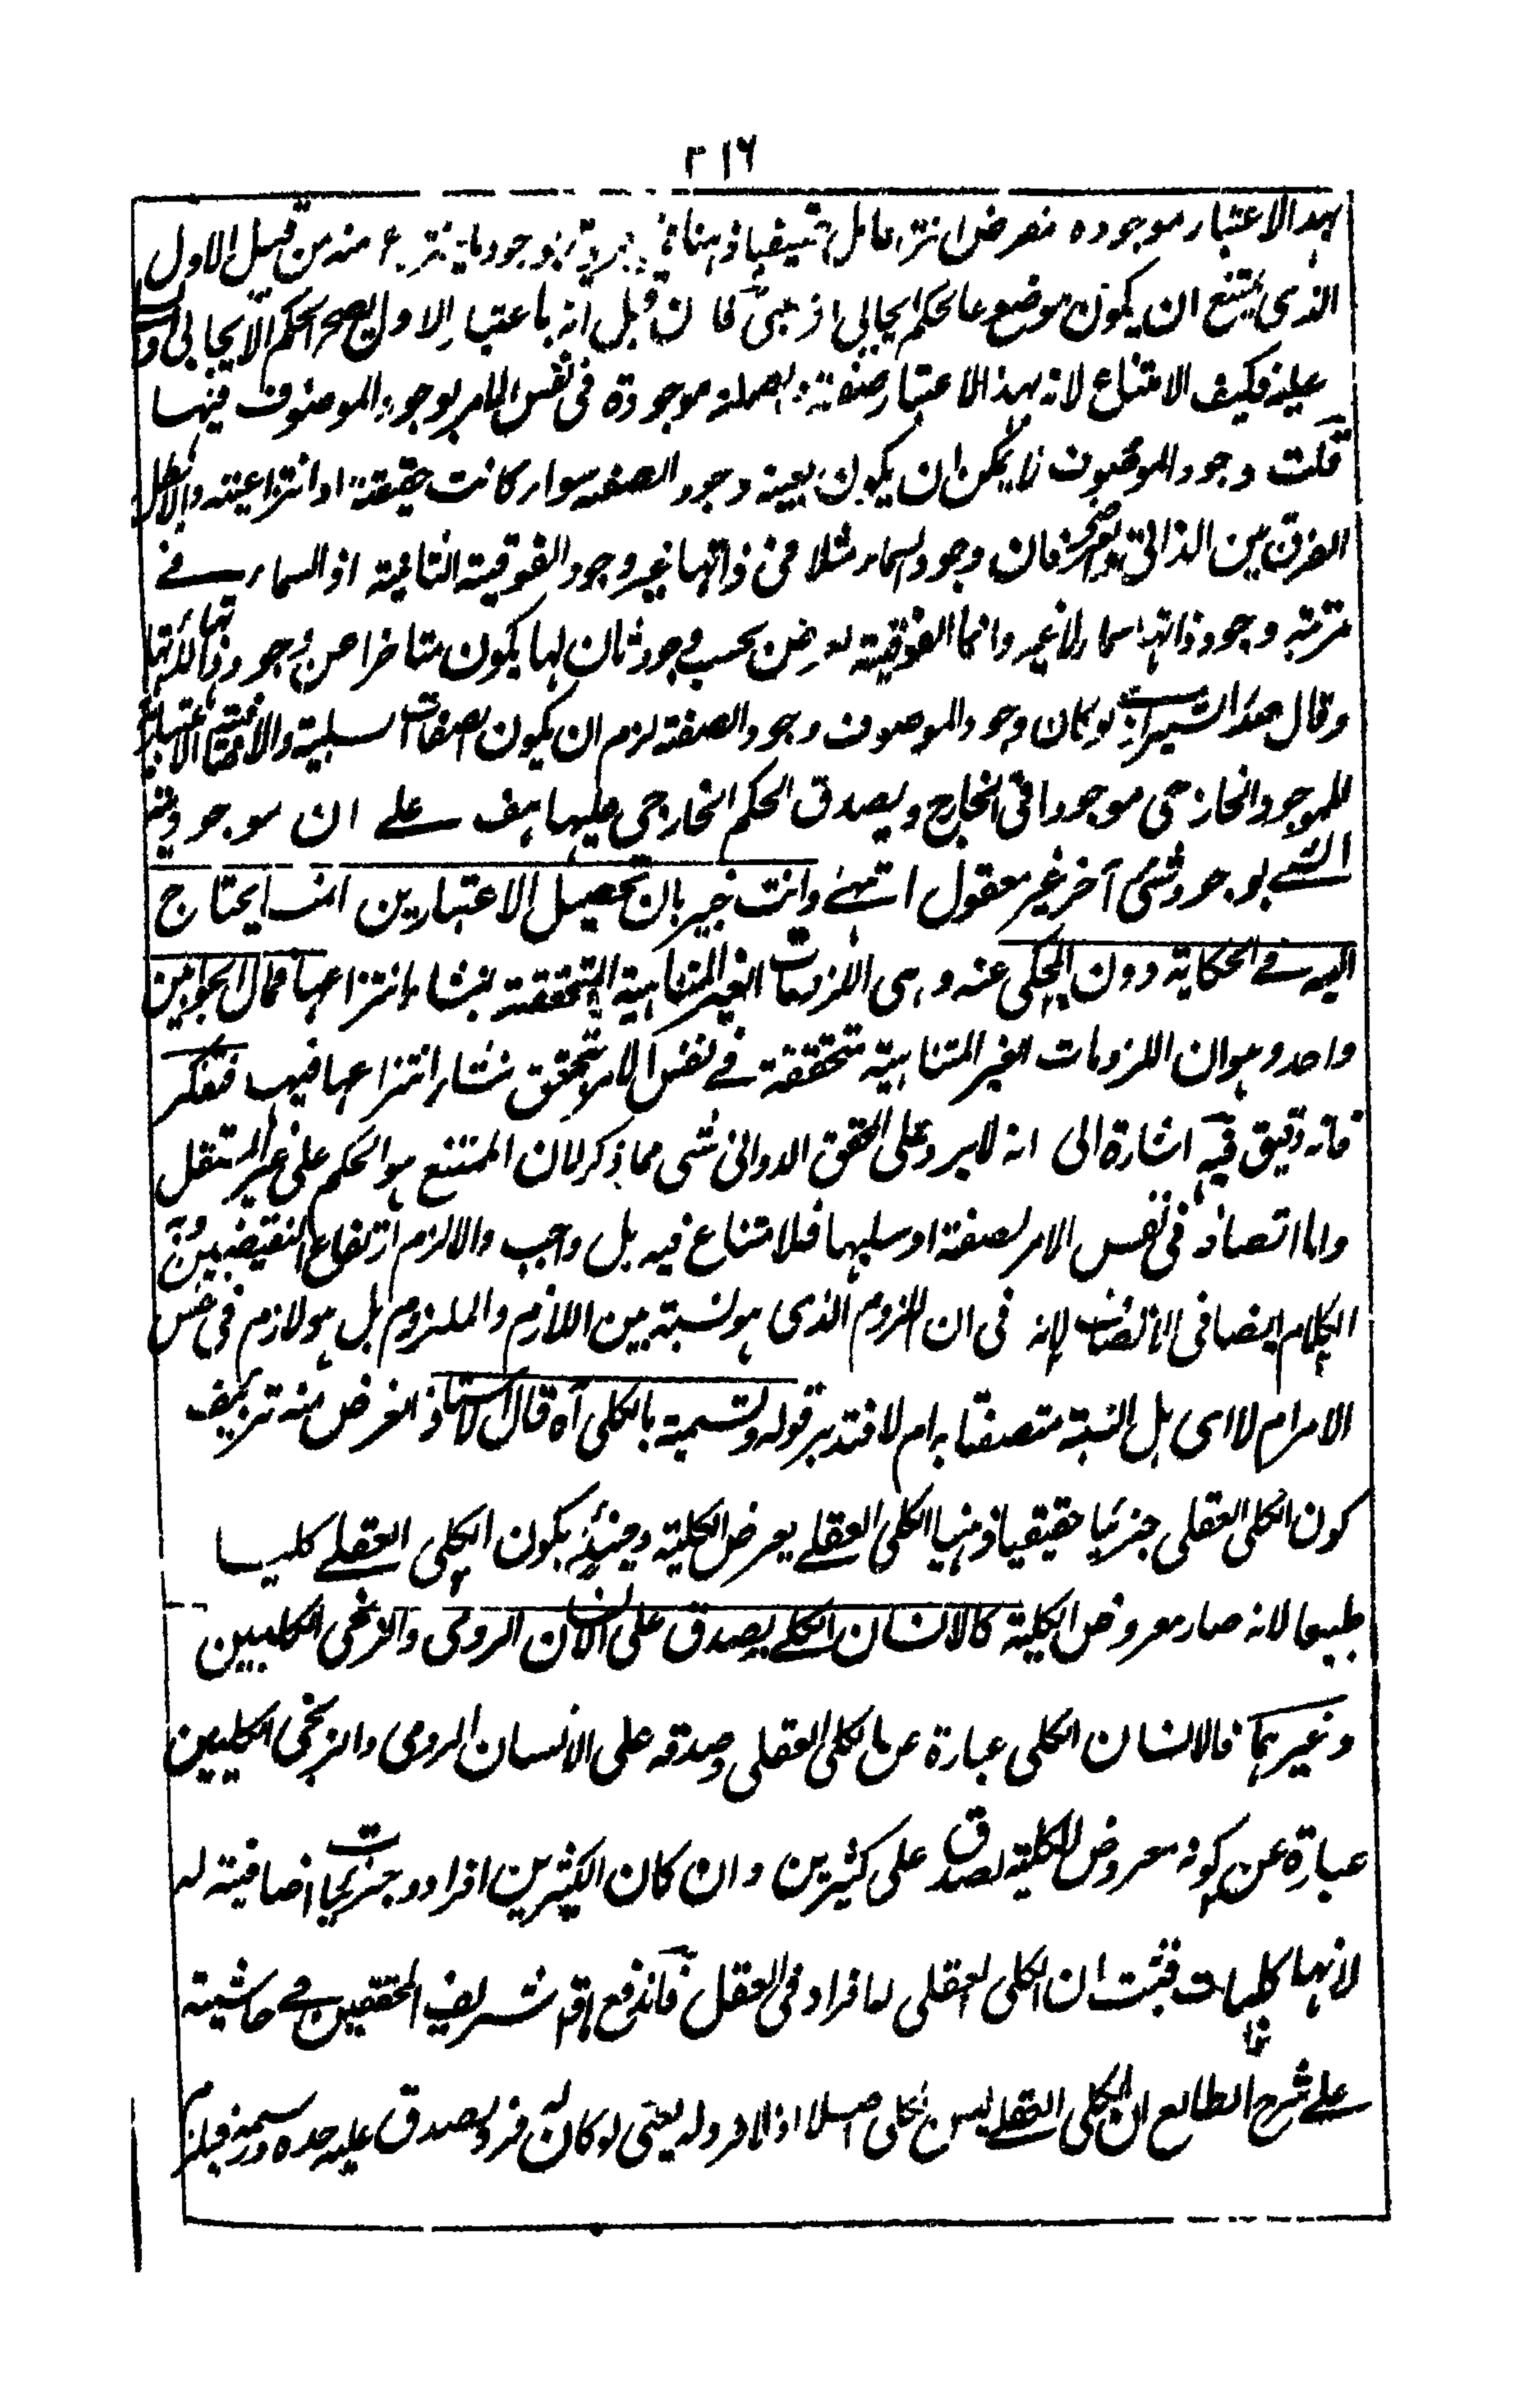 ٢١٦
بهذا الاعتبار موجوده منه من قبيل الاول
الذى يمتنع ان يكون موضوعا لحكم ايجابى فان قيل انه باعتبار الاول يصح الحكم الايجابى
عليه فكيف الامتناع لانه بهذا الاعتبار صفة موجودة فى نفس الامر بوجود الموصوف فيها
قلت وجود الموصوف لا يمكن ان يكون بعينه وجود الصفة سواء كانت حقيقة او انتزاعية والا بطل
الفرق بين الذاتى والعرضى فان وجود السماء مثلا فى ذاتها غير وجود الفوقية الثانية اذ السماء فى
مرتبة وجود ذاتها سماء لا غير وانما الفوقية لعرض بحسب وجود ثان لها يكون متاخرا عن وجود ذاتها
وقال صدر الشيرازى لو كان وجود الموصوف وجود الصفة لزم ان يكون الصفات السلبية والاضافية الاعتبارية
للموجود الخارجى موجودا فى الخارج ويصدق الحكم الخارجى عليها هف على ان موجودية
الشئ بوجود شئ آخر غير معقول انتهى وانت خبير بان تحصيل الاعتبارين انما يحتاج
اليه فى الحكاية دون المحكى عنه وهى اللزومات الغير المتناهية المتحققة بمنشاء انتزاعها فمال الجوابين
واحد وهو ان اللزومات الغير المتناهية متحققة فى نفس الامر بتحقق منشاء انتزاعها فيها فتفكر
فانه دقيق فيه اشارة الى انه لا يرد على المحقق الدوانى شى مما ذكر لان الممتنع هو الحكم على غير المستقل
واما اتصافه فى نفس الامر لصفة او سلبها فلا امتناع فيه بل واجب والا لزم ارتفاع النقيضين
الكلام ايضا فى الاتصاف لانه فى ان اللزوم الذى هو نسبة بين اللازم والملزوم بل هو لازم فى نفس
الامر ام لا اى بل النسبة متصفة به ام لا فتدبر قوله وتسمية بالكلى آه قال الاستاذ الغرض منه تزييف
كون الكلى العقلى جزئيا حقيقيا ذهنيا الكلى العقلى يعرض الكلية وحينئذ يكون الكلى العقلى كليا
طبيعا لانه صار معروض الكلية كالانسان الكلى يصدق على الانسان الرومى والزنجى الكليين
وغيرهما فالانسان الكلى عبارة عن الكلى العقلى وصدقه على الانسان الرومى والزنجى الكليين
عبارة عن كونه معروض الكلية لصدق على كثيرين وان كان الكثيرين افراد وجزئيات اضافية له
لانها كليات فثبت ان الكلى العقلى له افراد فى العقل فاندفع ما قال شريف المحققين فى حاشيته
على شرح المطالع ان الكلى العقلى ليس بكلى اصلا اذ لا فرد له يعنى لو كان له فرد يصدق عليه حده ورسمه فيلزم